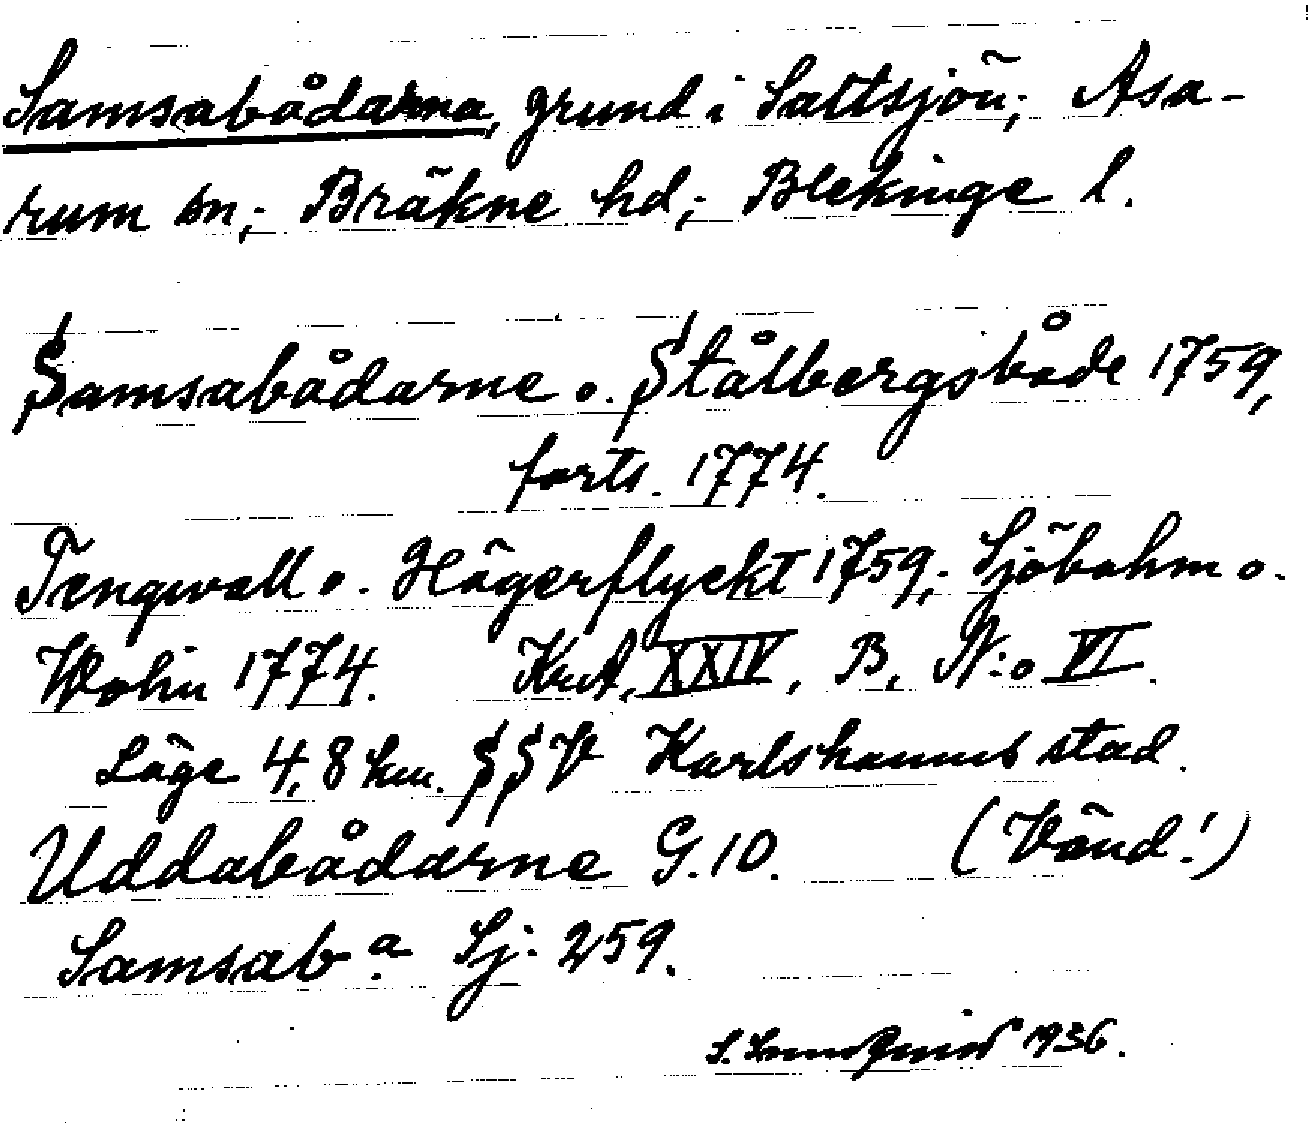 Samsabådarna, grund i Saltsjön; Asa-
rum sn; Bräkne hd; Blekinge l.
Samsabådarne o. Stålbergsbåde 1759,
forts. 1774.
Tengwall o. Hägerflyckt 1759; Sjöbohm o.
Wohin 1774. Krt. XXIV, B, N:o VI.
Läge 4,8 km. SSV Karlshamns stad.
Uddabådarne G. 10. (Vänd!)
Samsab a Sj: 259.
S. 1936.